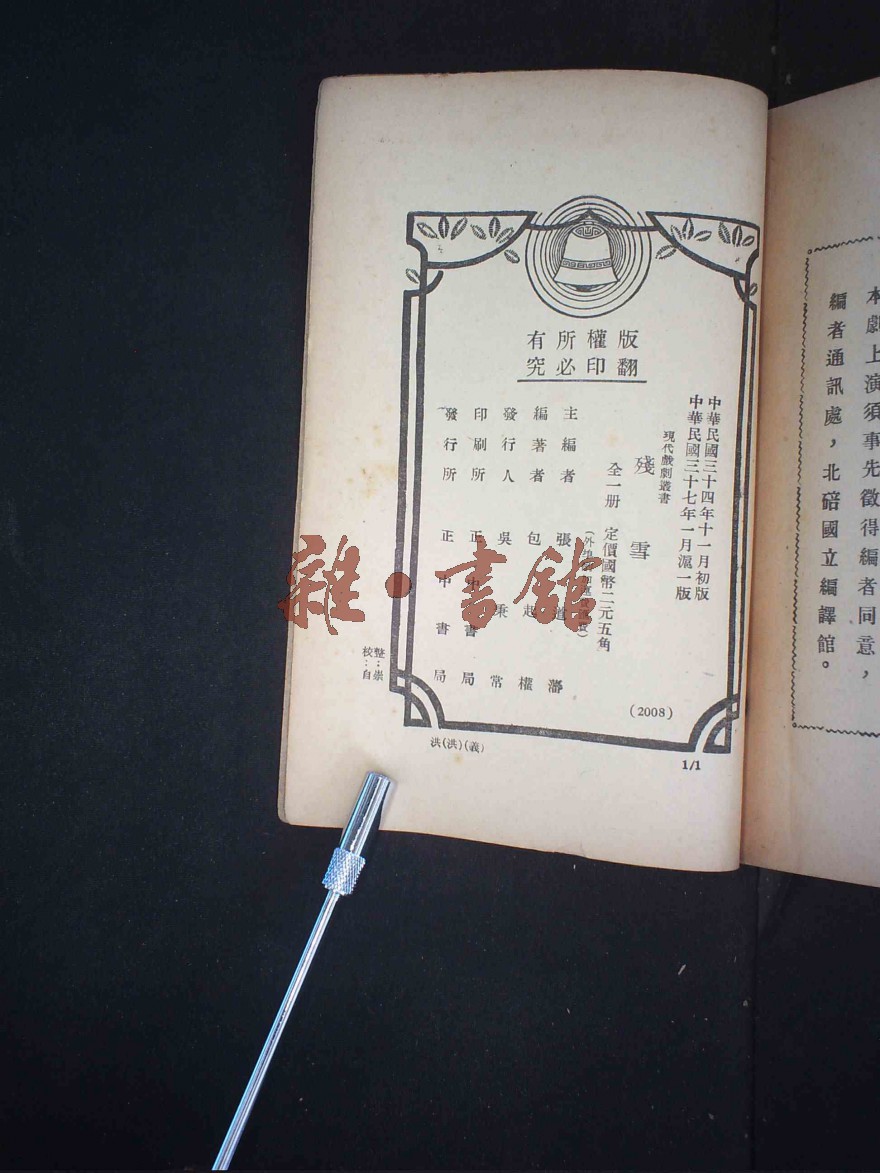 本劇上演須事先徵得編者同意，
編者通訊處，北碚國立編譯館。
版權所有
翻印必究
中華民國三十四年十一月初版
中華民國三十七年一月滬一版
現代戲劇叢書
殘雪
全一册 定價國幣二元五角
主編者 張道藩
編著者 包起權
發行人 吳秉常
印刷所 正中書局
發行所 正中書局
(2008)
整：崇
校：自
洪(洪)(義)
1/1
雜·書館